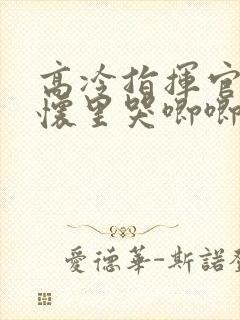 高冷指揮官
懷里哭唧唧
愛德華-斯諾